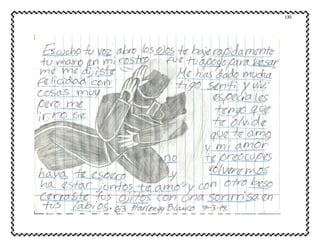 130
Escucho tu voz abro los ojos te baje rapidamente
tu mano en mi rostro fue tu apoyo para besar
me me dijiste Me has dado mucha
felicidad con tigo senti y vivi
cosas muy especiales
pero me tengo que
ir no se te olvide
que te amo
y mi amor
no te preocupes
haya te espero y volveremos
ha estar juntos te amo y con otro beso
cerraste tus ojitos con una sonrrisa en
tus labios.